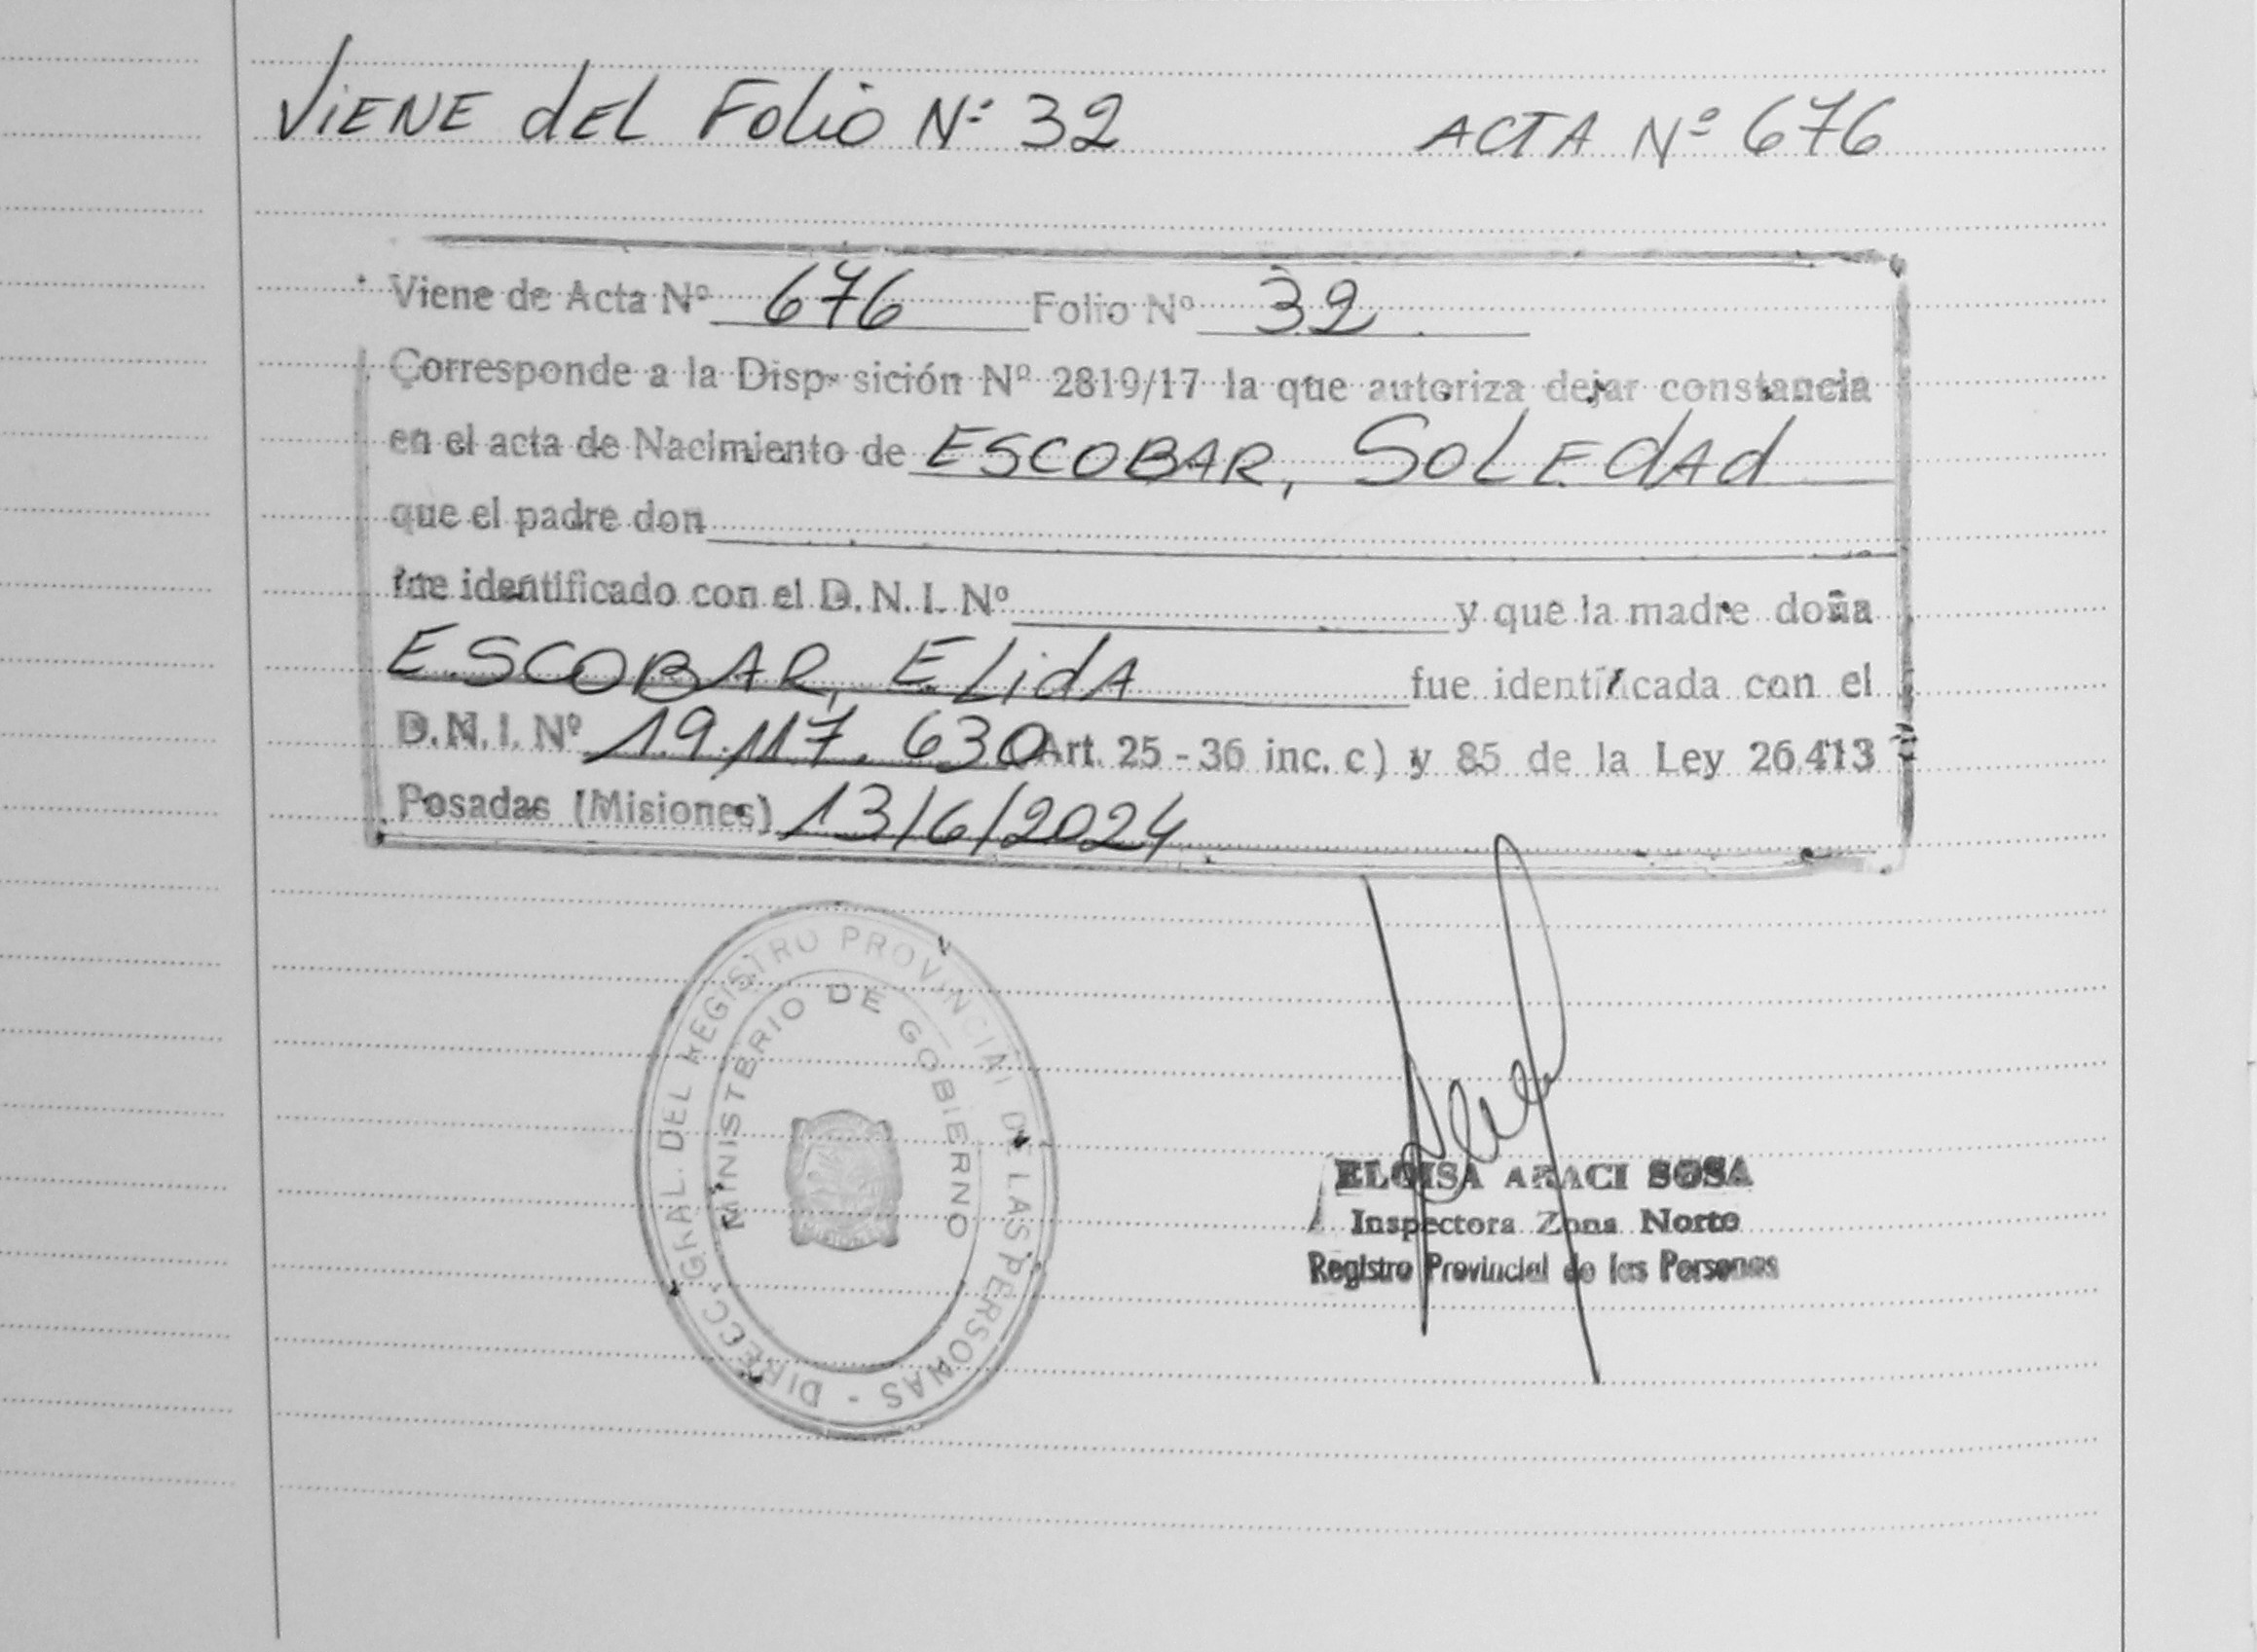 ViENE dEL Folio Nº 32 ACTA Nº 676
Viene de Acta Nº 676 Folio Nº 32
Corresponde a la Disp sición Nº 2819/17 la que autoriza dejar constancia
en el acta de Nacimiento de ESCOBAR, SOLEdAd
que el padre don
fue identificado con el D. N. I. Nº y que la madre doña
ESCOBAR, ELidA fue identificada con el
D. N. I. Nº 19.117.630 Art. 25 - 36 inc. c) y 85 de la Ley 26.413
Posadas (Misiones) 13/6/2024
DIRECC. GRAL. DEL REGISTRO PROVINCIAL DE LAS PERSONAS -
MINISTERIO DE GOBIERNO
ELOISA ARACI SOSA
Inspectora Zona Norte
Registro Provincial de las Personas